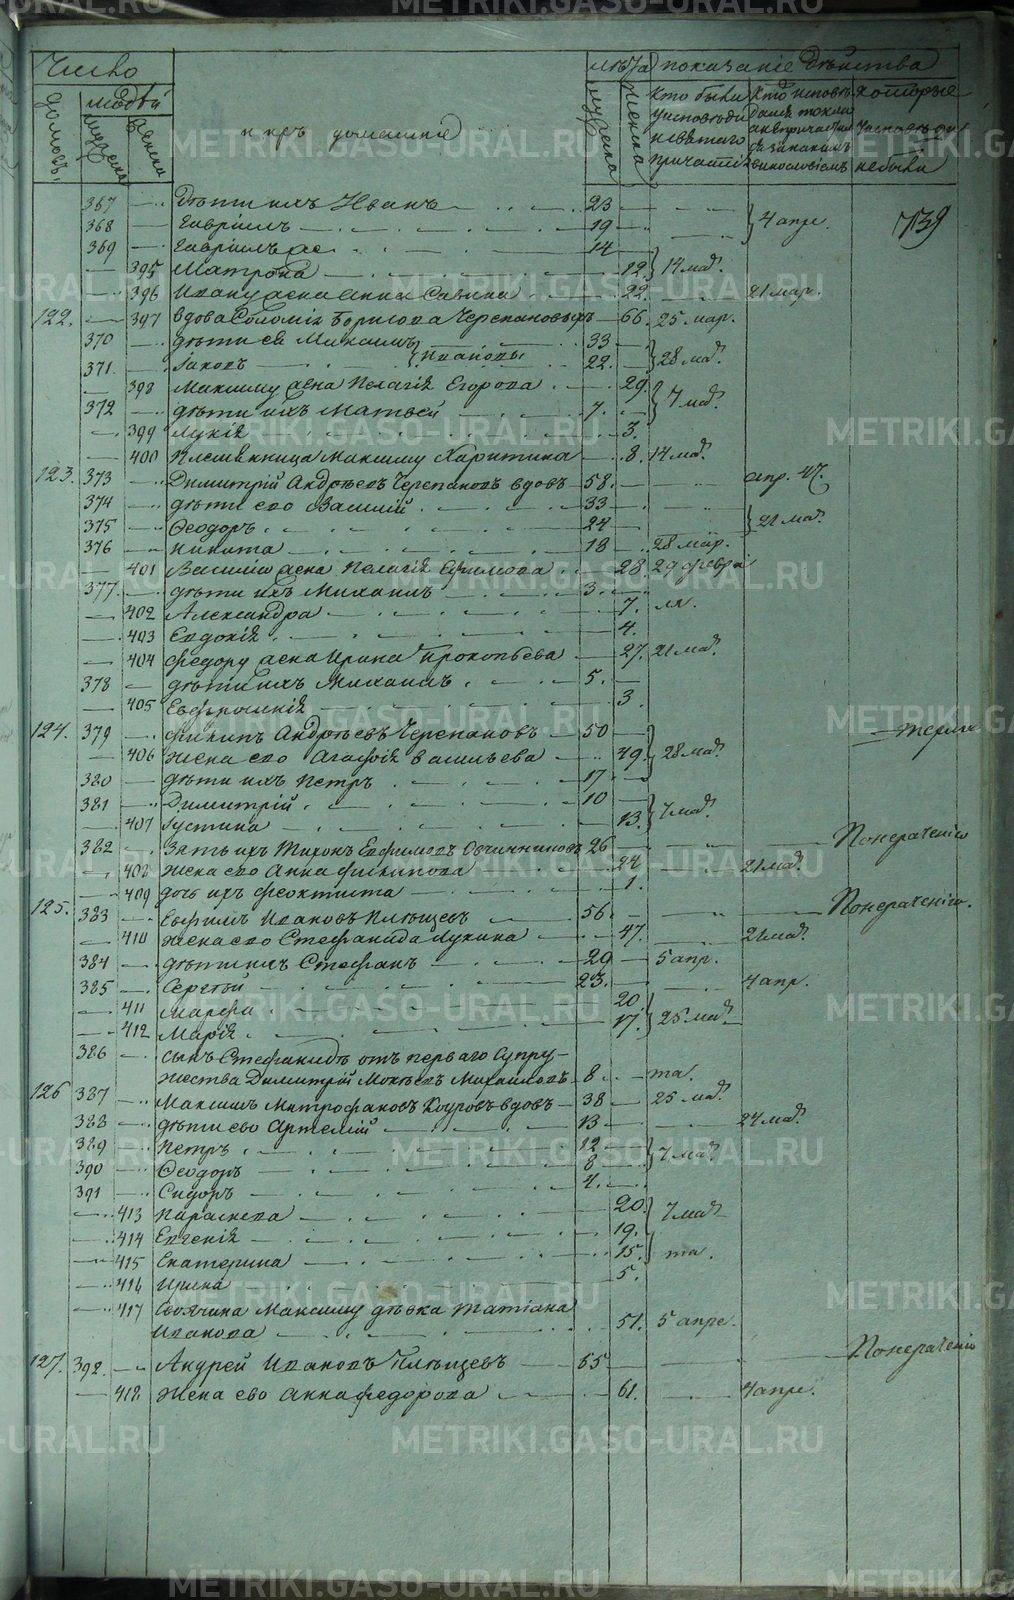 Число
лѣта показаніе дѣйства
домовъ
людей
мужеска
женска
и ихъ домашніе
мужска
женска
Кто были у исповѣди и святаго причастія
Кто исповѣдался токмо а не причастился и за какимъ винословіемъ
которые у исповѣди не были
739
367 дѣти ихъ Иванъ 23
368 Гавріилъ 19 4 апре.
369 Гавріилъ же 14
395 Матрона 12. 14 мар.
396 Ивану жена Анна Савина 22. 21 мар.
122. 397 вдова Соломія Борисова Черепановыхъ 66. 25 мар.
370 дѣти ея Максимъ 33
371. Іаковъ Ивановы 22. 28 мар.
398 Максиму жена Пелагія Егорова 29.
372 дѣти ихъ Матвей 7. 7 мар.
399 Лукія 3.
400 племянница Максиму Харитина 8. 14 мар.
123. 373 Димитрій Андреевъ Черепановъ вдовъ 58.
374 дѣти его Василій 33
375 Ѳеодоръ 24 21 мар.
376 Никита 18 28 мар.
401 Василію жена Пелагія Ефимова 28. 29 февра
377. дѣти ихъ Михаилъ 3.
402 Александра 7.
403 Евдокія 4.
404 Федору жена Ирина Прокопьева 27. 21 мар.
378 дѣти ихъ Михаилъ 5.
405 Евфросинія 3
124. 379 Филипъ Андреевъ Черепановъ 50
406 жена его Агафія Васильева 49. 28 мар.
380 дѣти ихъ Петръ 17
381 Димитрій 10
407 Іустина 13. 7 мар.
382 Зять ихъ Тихонъ Евфимовъ Овчинниковъ 26 По нераченію
408 жена его Анна Филипова 24 21 мар.
409 дочь ихъ Феоктиста 1.
125. 383 Евфимъ Ивановъ Плющевъ 56 По нераченію.
410 жена его Стефанида Лукина 47. 21 мар.
384 дѣти ихъ Стефанъ 29 5 апр.
385 Сергей 23. 4 апр.
411 Марфа 20
412 Марія 17. 25 мар.
386 сынъ Стефаниды отъ перваго супру-
жества Димитрій Михайловъ 8 та.
126 387 Максимъ Митрофановъ вдовъ 38 25 мар.
388 дѣти его Артемій 13 24 мар.
389 Петръ 12
390 Ѳеодоръ 8 7 мар.
391 Сидоръ 4.
413 Параскева 20.
414 Евгенія 19. 7 мар.
415 Екатерина 15. та.
416 Ирина 5.
417 Своячина Максиму дѣвка Татіана
Иванова 51. 5 апре.
127. 392. Андрей Ивановъ Плющевъ 65 По нераченію
418 жена его Анна Федорова 61. 4 апре.
METRIKI.GASO-URAL.RU